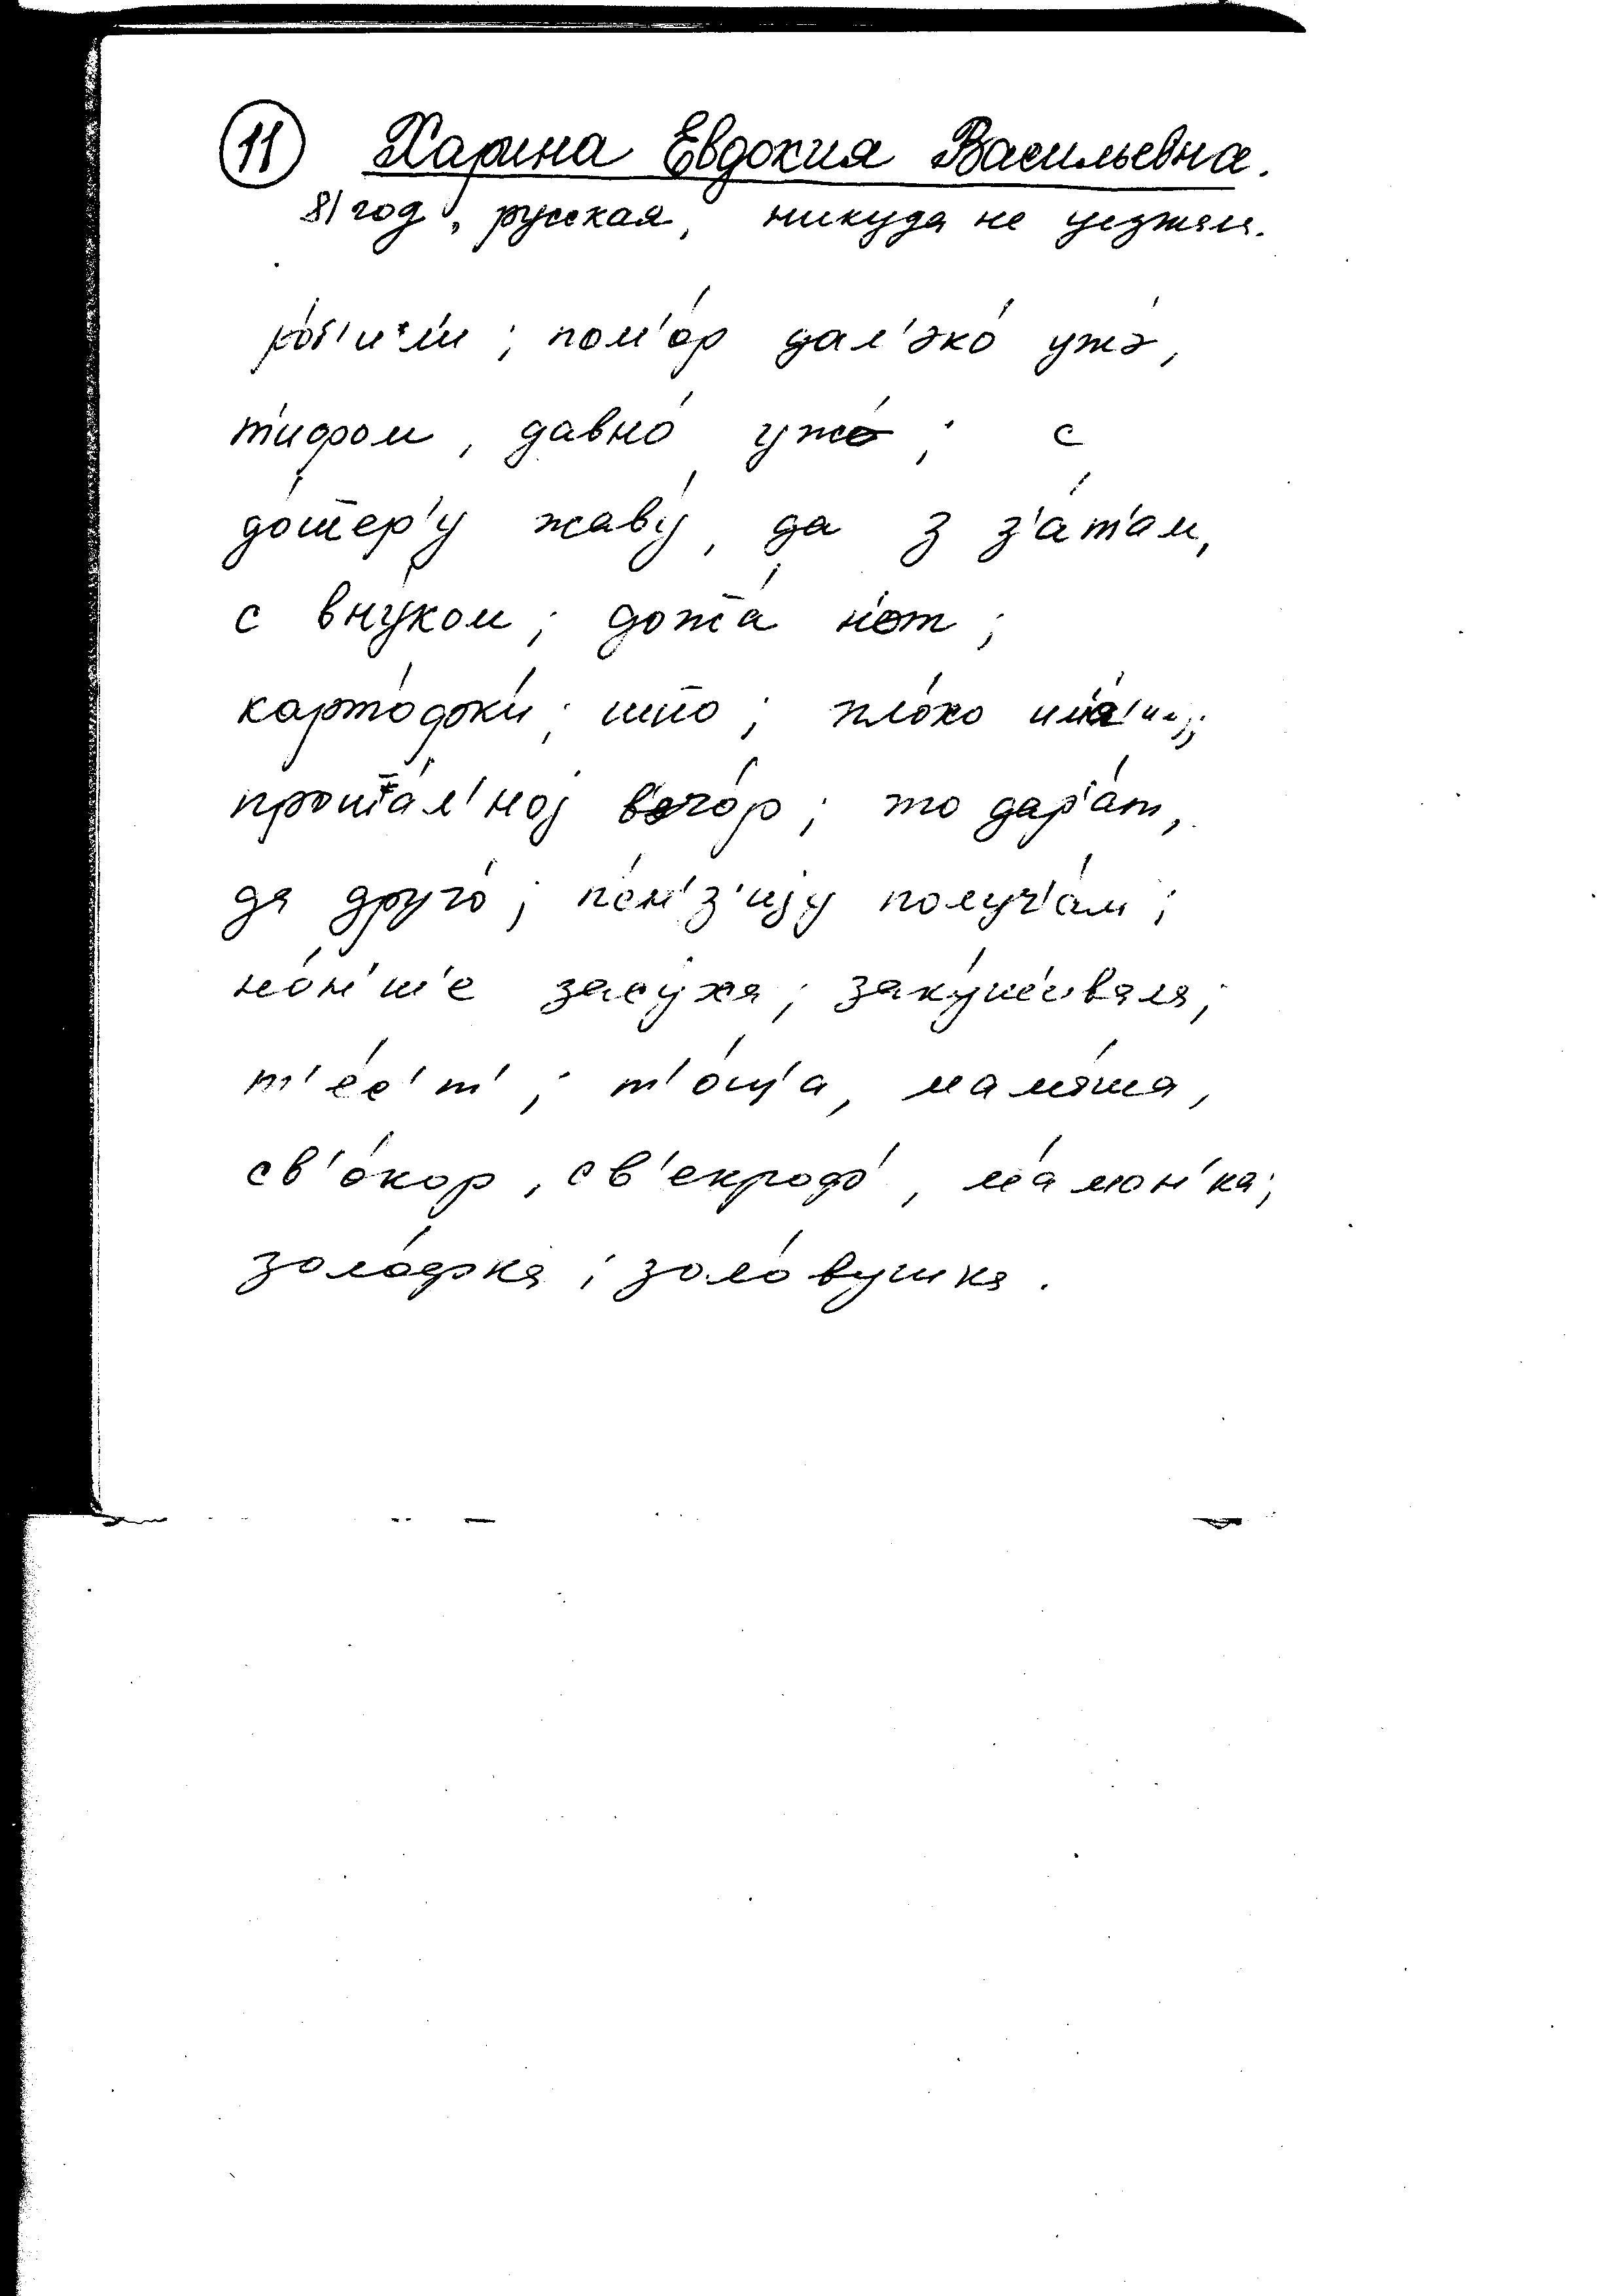 11 Харина Евдокия Васильевна.
81 год, русская, никуда не уезжала.
ро́б'и́л'и ; пом'о́р дал'эко́ ужэ́,
ти́фом, давно́ ужо́ ; с
до́тер'у жаву́, да з з'а́т'ам,
с вну́ком ; дожта́ н'ет ;
карто́фки ; што ; пло́хо
прошта́л'ној вечо́р ; то дар'а́т,
да друго́ ; п'е́н'з'ију получ'а́м ;
но́н'ш'е засу́ха ; заку́п'ивала ;
т'е́с'т' ; т'о́щ'а, мама́ша,
св'о́кор, св'екро́ф', ма́мон'ка ;
золо́фка ; золо́вушка.